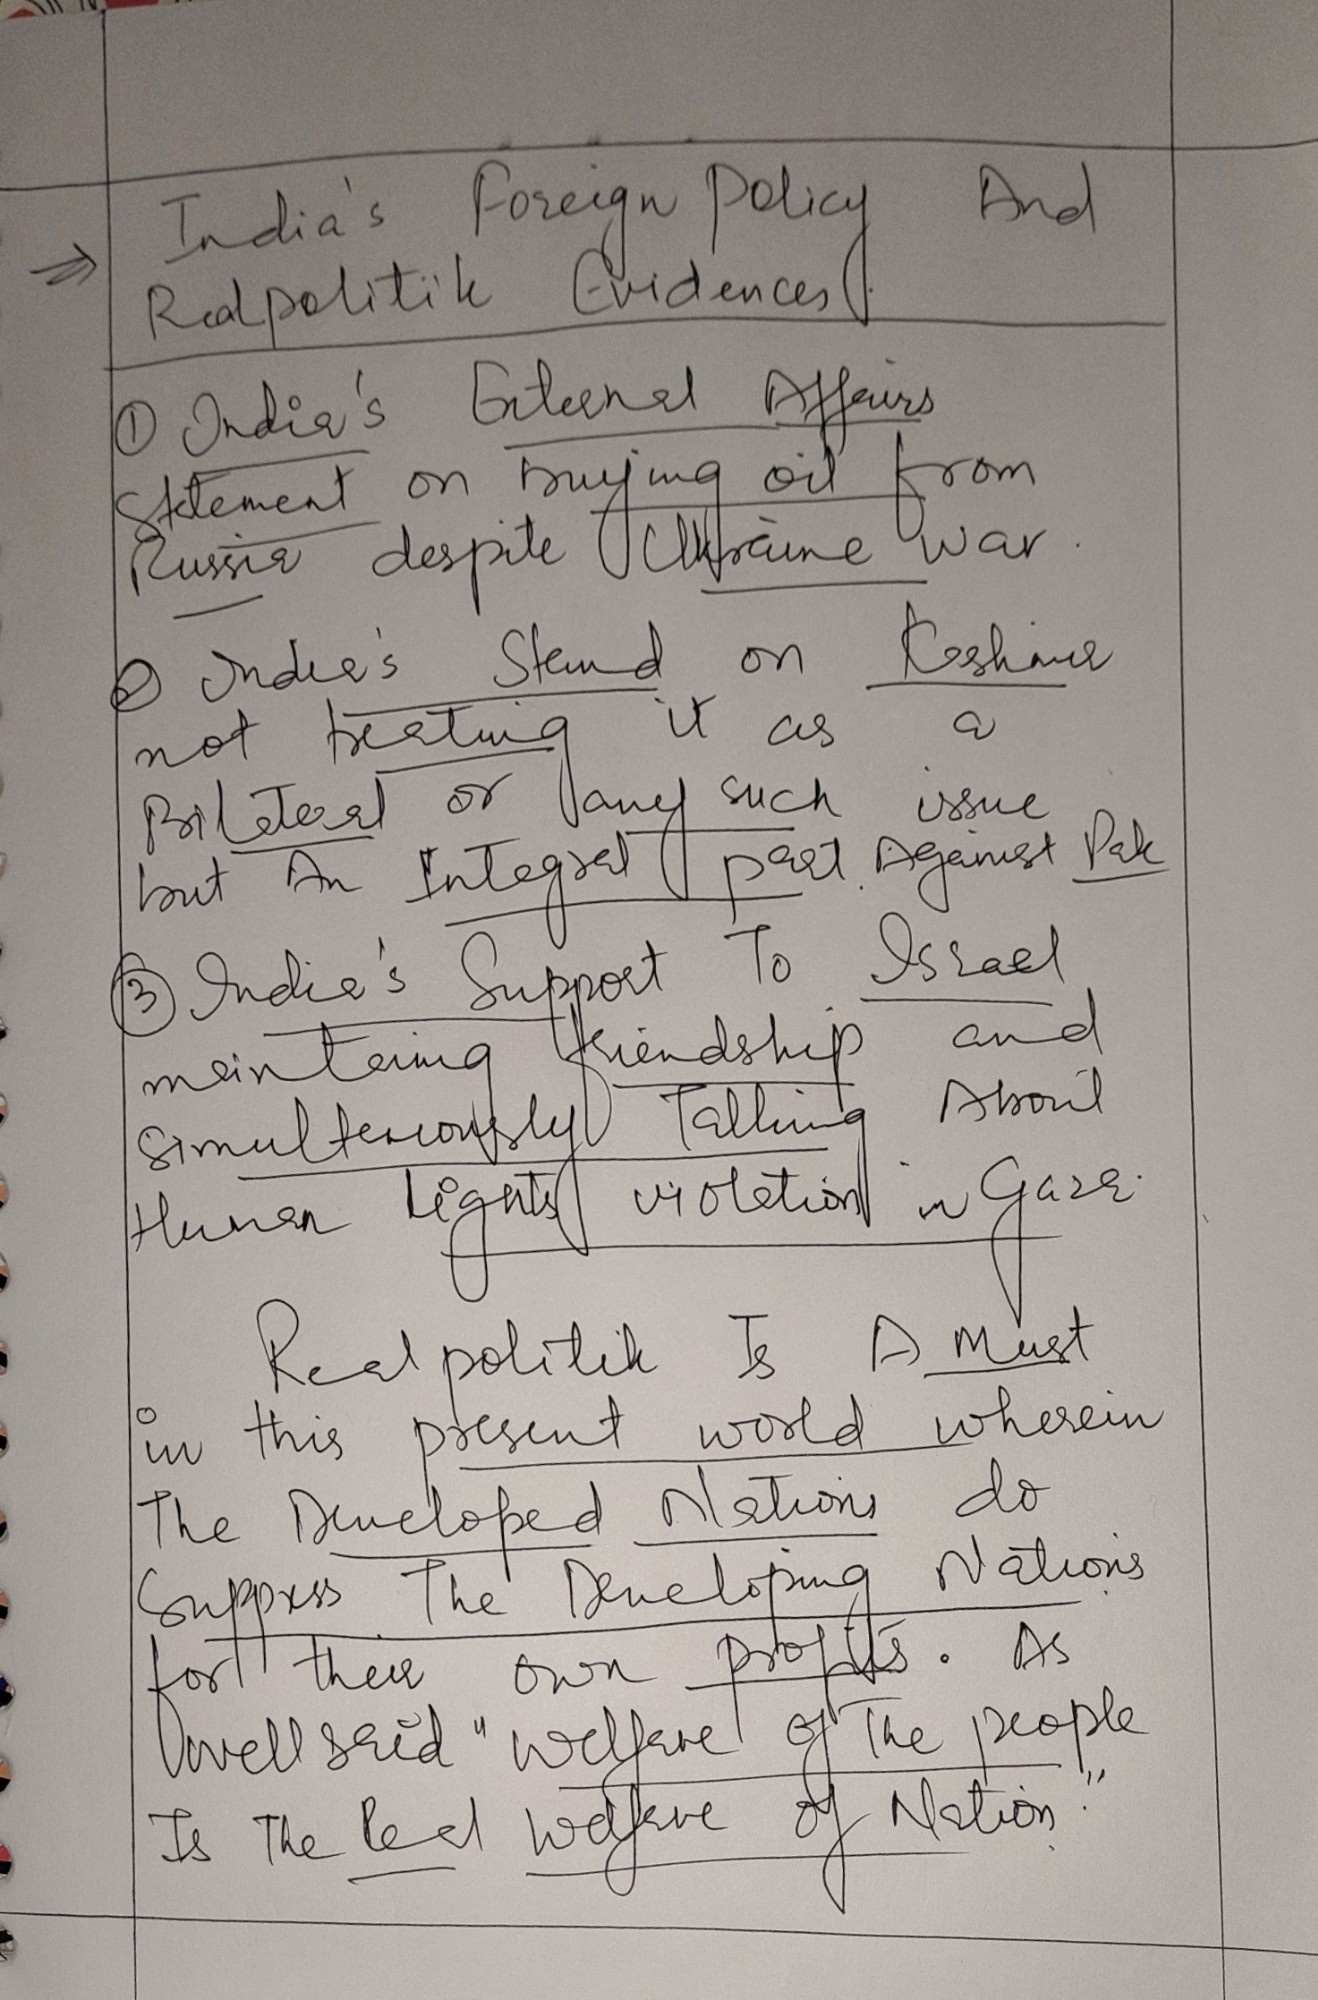 India's Foreign Policy And
⇒ Realpolitik Evidences.
① India's External Affairs
Statement on buying oil from
Russia despite Ukraine war.
② India's Stand on Kashmir
not treating it as a
Bilateral or any such issue
but An Integral part. Against Pak
③ India's Support To Israel
maintaing friendship and
simultaneously Talking About
Human Rights violation in Gaza.
Realpolitik Is A Must
in this present world wherein
The Developed Nations do
Suppress The Developing Nations
for their own profits. As
said "welfare of The people
Is The Real Welfare of Nation."